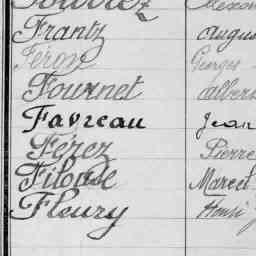 Frantz
Féron Georges
Fournet Albert
Favreau Jean
Ferez Pierre
Filouse Marcel
Fleury Henri